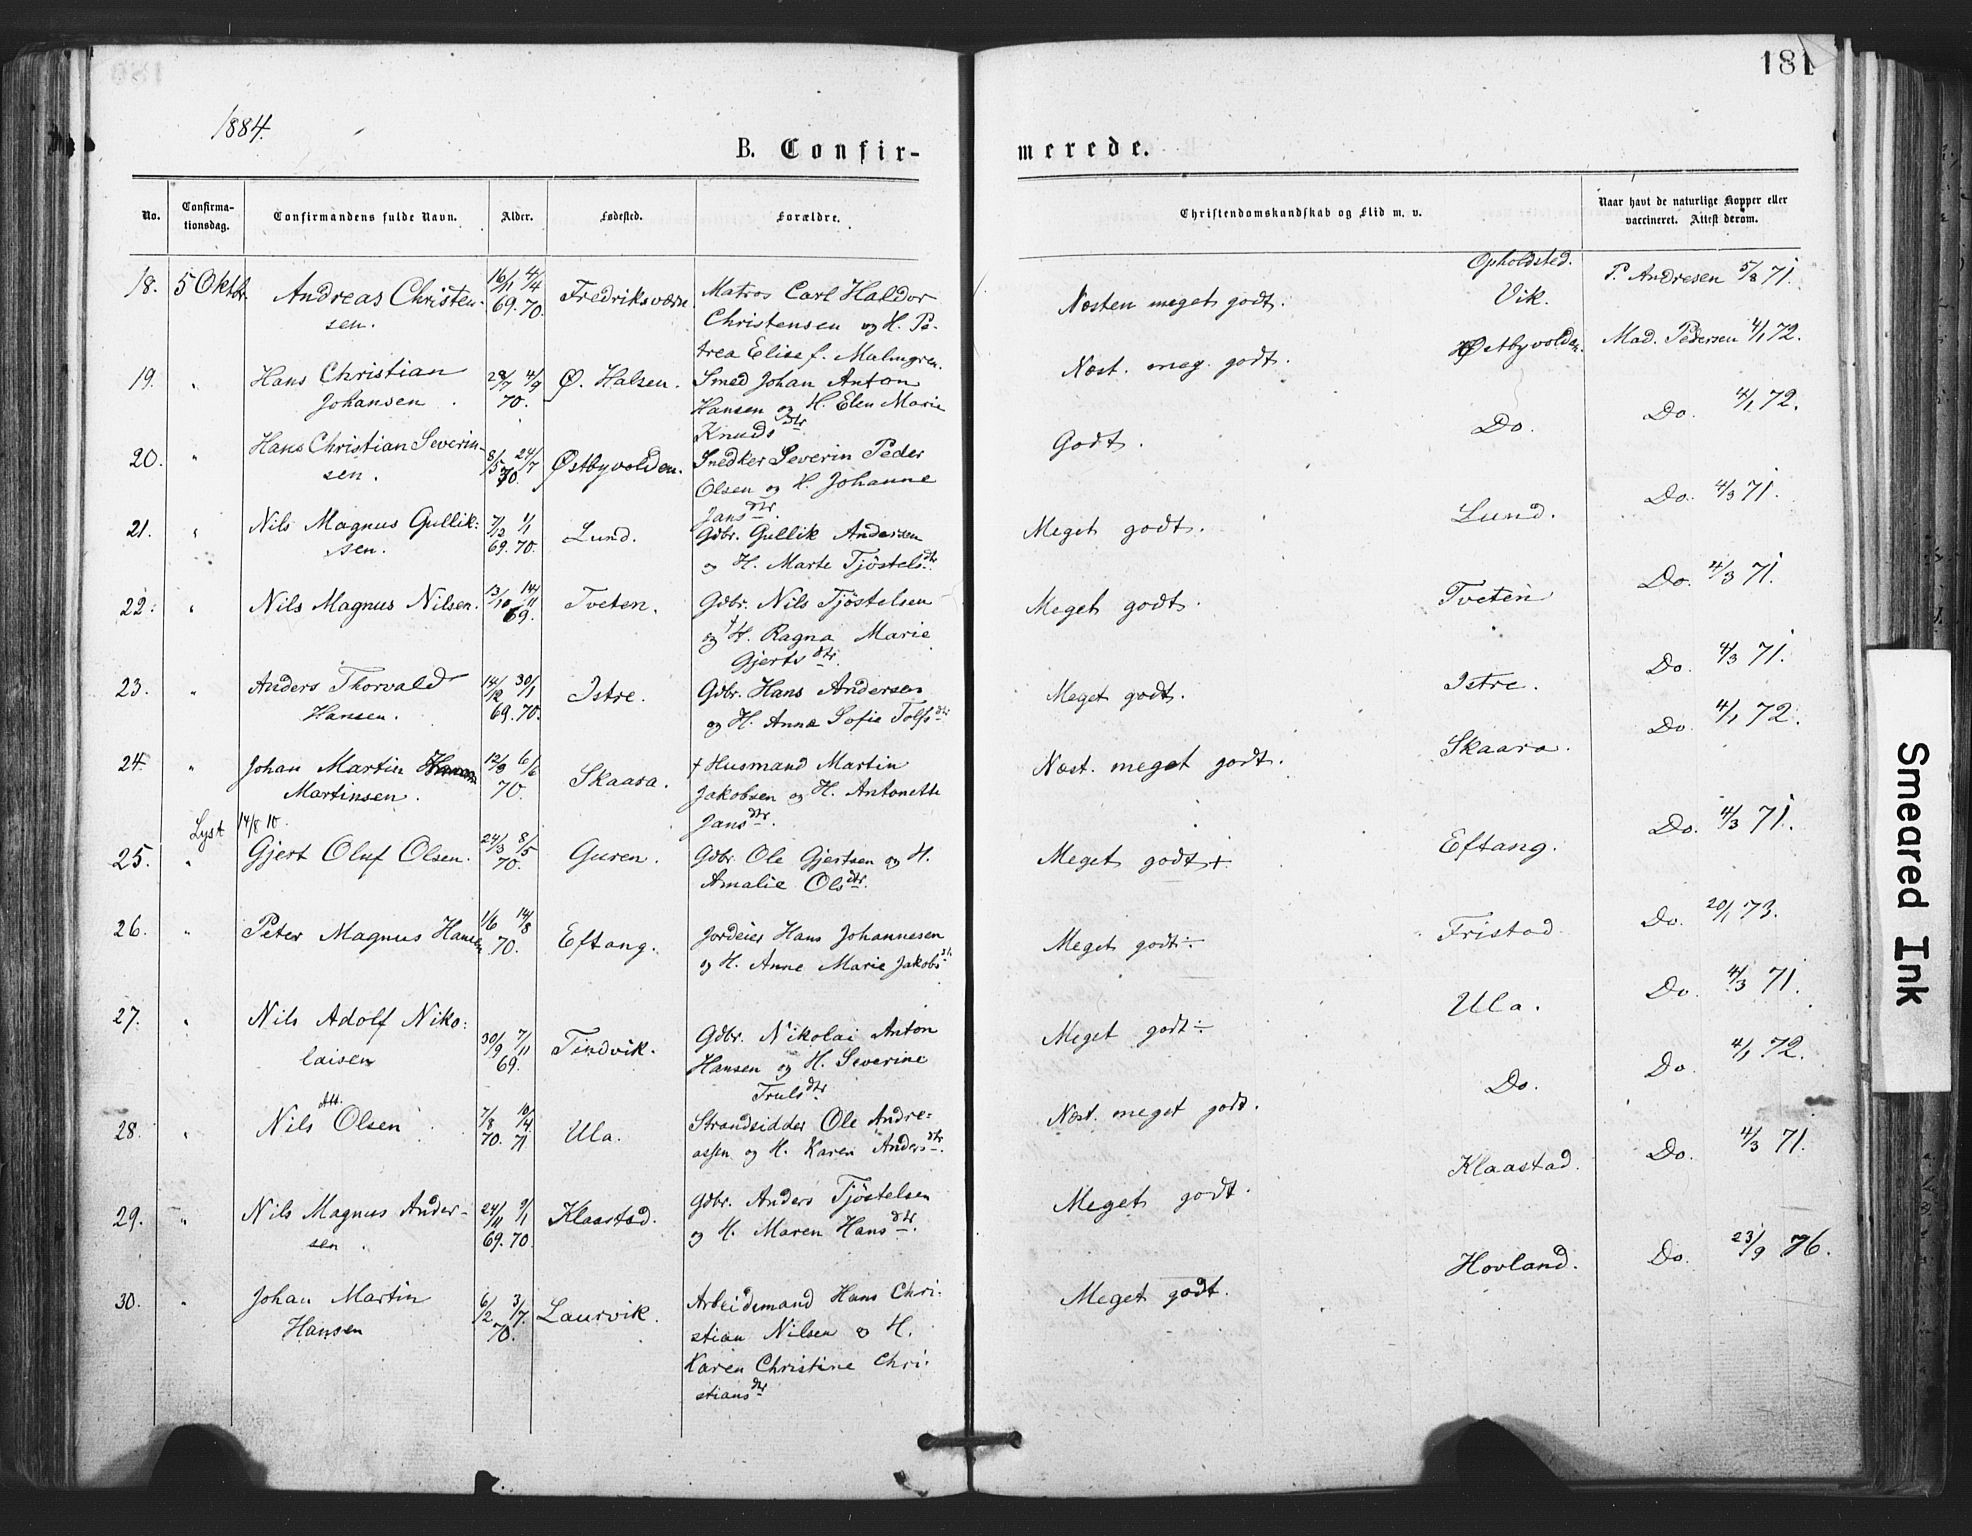 181
1884.
B. Confir-
merede.
No.
Confirma-
tionsdag.
Confirmandens fulde Navn.
Alder.
Fødested.
Forældre.
Christendomskundskab og Flid m. v.
Naar havt de naturlige Kopper eller
vaccineret. Attest derom.
Opholdsted.
18. 5 Oktbr. Andreas Christen-
sen.
16/11 4/4
69. 70.
Fredriksværn
Matros Carl Haldor
Christensen og H. Pe-
trea Elise f. Malmgren.
Næsten meget godt.
Vik.
P. Andresen 5/8 71.
19. " Hans Christian
Johansen.
28/7 4/9
70.
Ø. Halsen.
Smed Johan Anton
Hansen og H. Elen Marie
Knudsdtr
Næst. meg. godt.
Østbyvolden.
Mad. Pedersen 4/1 72.
20. " Hans Christian Severin-
sen.
8/5 24/7
70.
Østbyvolden.
Snedker Severin Peder
Olsen og H. Johanne
Jansdtr.
Godt.
Do.
Do. 4/1 72.
21. " Nils Magnus Gullik:
sen.
7/12 1/1
69. 70.
Lund.
Gdbr. Gullik Andersen
og H. Marte Tjöstelsdtr.
Meget godt.
Lund.
Do. 4/3 71.
22. " Nils Magnus Nilsen.
13/10 14/11
69.
Tveten.
Gdbr. Nils Tjöstelsen
og † H. Ragna Marie
Gjertsdtr.
Meget godt.
Tveten
Do. 4/3 71.
23. " Anders Thorvald
Hansen.
14/12 30/1
69. 70.
Istre.
Gdbr. Hans Andersen
og H. Anne Sofie Tolfsdtr
Meget godt.
Istre.
Do. 4/3 71.
24. " Johan Martin
Martinsen.
12/3 6/6
70.
Skaara.
† Husmand Martin
Jakobsen og H. Antonette
Jansdtr.
Næst. meget godt.
Skaara.
Do. 4/1 72.
Lyst 14/8 10.
25. " Gjert Oluf Olsen.
24/3 8/5
70.
Guren.
Gdbr. Ole Gjertsen og H.
Amalie Olsdtr.
Meget godt +
Eftang.
Do. 4/3 71.
26. " Peter Magnus Hansen
1/6 14/8
70.
Eftang.
Jordeier Hans Johannesen
og H. Anne Marie Jakobsdt.
Meget godt ÷
Fristad
Do. 20/1 73.
27. " Nils Adolf Niko:
laisen
30/9 7/11
69.
Tindvik.
Gdbr. Nikolai Anton
Hansen og H. Severine
Trulsdtr.
Meget godt ÷
Ula.
Do. 4/3 71.
28. " Nils Olsen
7/8 10/4
70. 71
Ula.
Strandsidder Ole Andre-
assen og H. Karen Andersdtr.
Næst. meget godt.
Do.
Do. 4/1 72.
29. " Nils Magnus Ander-
sen.
24/11 9/1
69. 70
Klaastad.
Gdbr. Anders Tjöstelsen
og H. Maren Hansdtr.
Meget godt.
Klaastad.
Do. 4/3 71.
30. " Johan Martin
Hansen
6/2 3/7.
70.
Laurvik.
Arbeidsmand Hans Chri-
stian Nilsen og H.
Karen Christine Chri-
stiansdtr
Meget godt.
Hovland.
Do. 23/9 76.
Smeared Ink